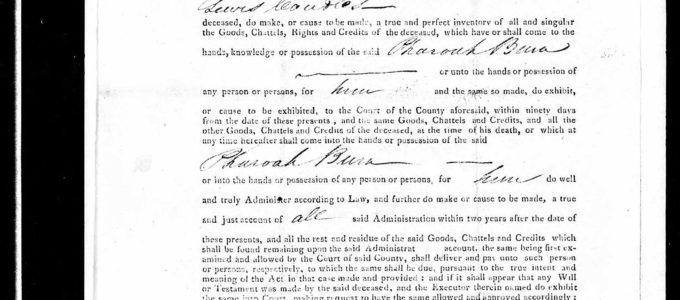 Lewis
deceased, do make, or cause to be made, a true and perfect inventory of all and singular
the Goods, Chattels, Rights and Credits of the deceased, which have or shall come to the
hands, knowledge or possession of the said Pharoah
or unto the hands or possession of
any person or persons, for him and the same so made, do exhibit,
or cause to be exhibited, to the Court of the County aforesaid, within ninety days
from the date of these presents, and the same Goods, Chattels and Credits, and all the
other Goods, Chattels and Credits of the deceased, at the time of his death, or which at
any time hereafter shall come into the hands or possession of the said
Pharoah
or into the hands or possession of any person or persons, for him do well
and truly Administer according to Law, and further do make or cause to be made, a true
and just account of all said Administration within two years after the date of
these presents, and all the rest and residue of the said Goods, Chattels and Credits which
shall be found remaining upon the said Administrat account, the same being first ex-
amined and allowed by the Court of said County, shall deliver and pay unto such person
or persons, respectively, to which the same shall be due, pursuant to the true intent and
meaning of the Act in that case made and provided ; and if it shall appear that any Will
or Testament was made by the said deceased, and the Executor therein named do exhibit
the same into Court, making request to have the same allowed and approved accordingly ;